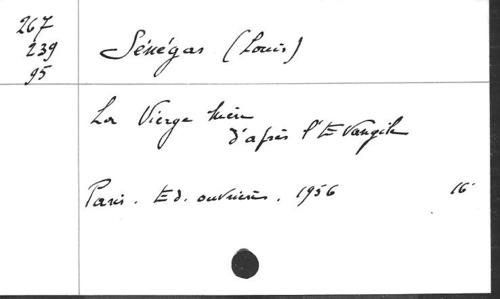 267
239
95
Sénégas (Louis)
La Vierge Mère
d'après l'Evangile
Paris. Ed. ouvrières. 1956 16°